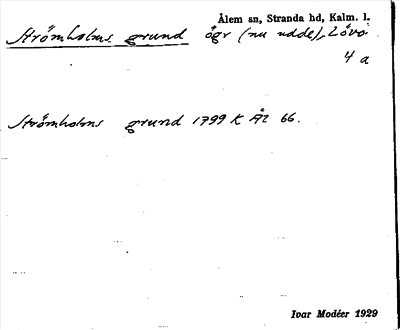 Ålem sn, Stranda hd, Kalm. l.
Strömholms grund ögr (nu udde), Lövö
4 a
Strömholms grund 1799 K Ål 66.
Ivar Modéer 1929